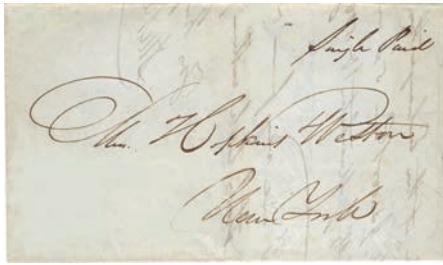 Single Paid
Mrs. Hopkins Weston
New York